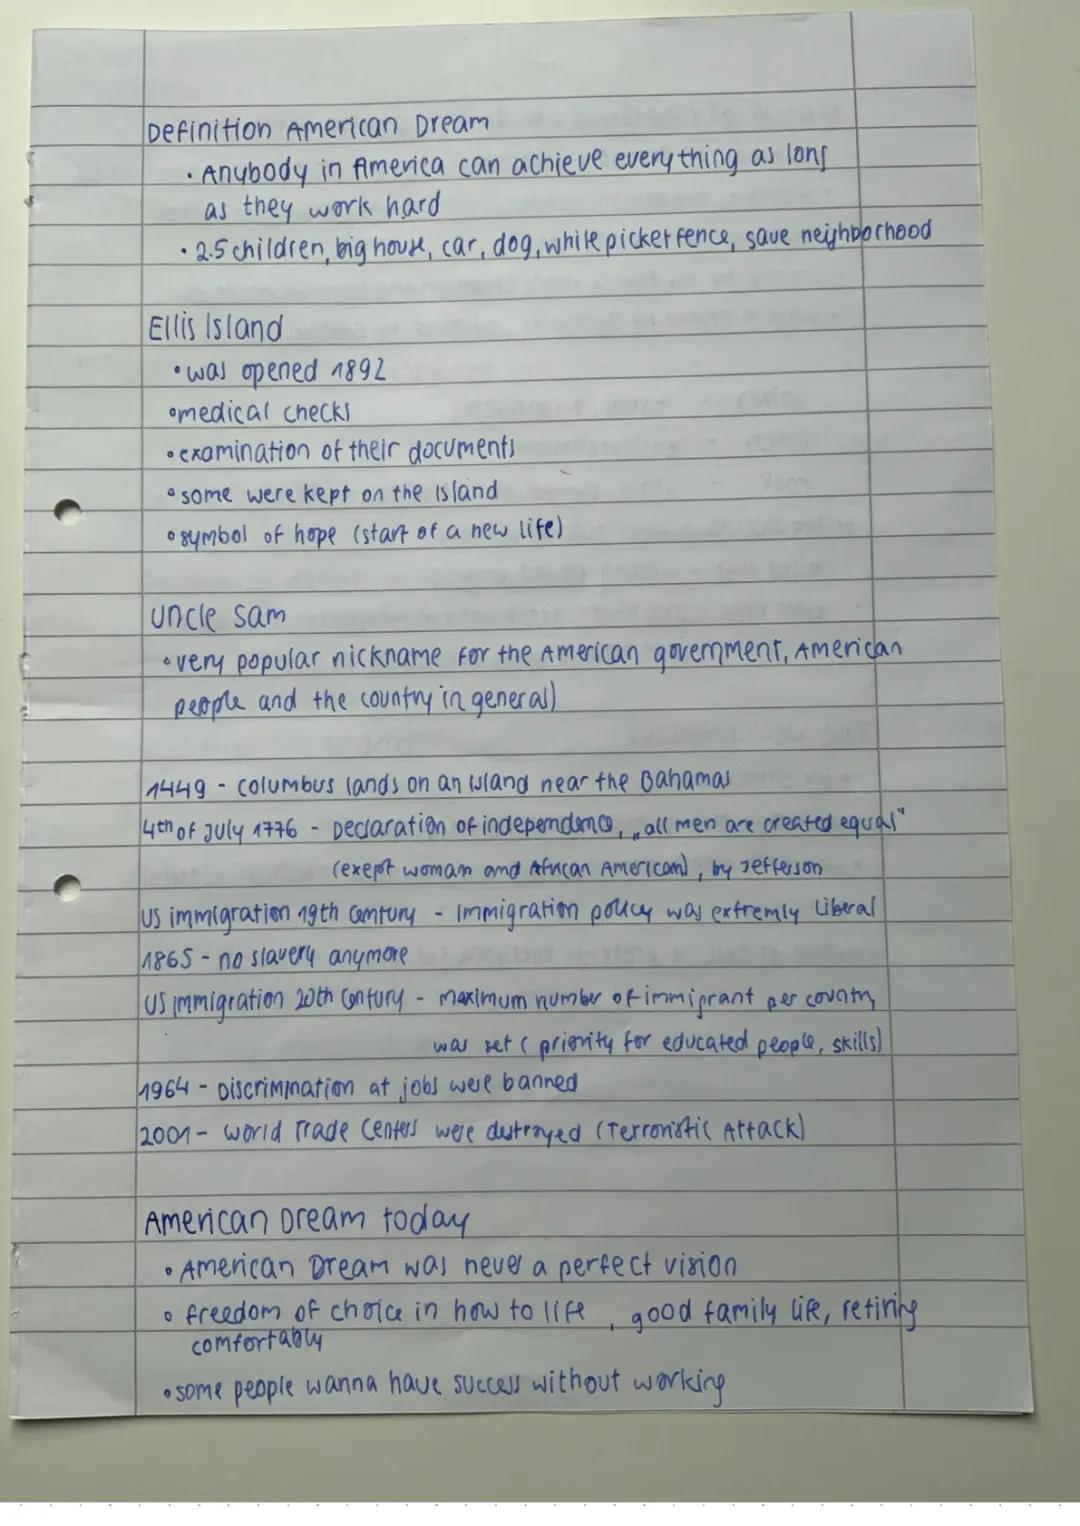 Definition American Dream
• Anybody in America can achieve everything as long
as they work hard
• 2.5 children, big house, car, dog, white picket fence, save neighborhood
Ellis Island
• was opened 1892
• medical checks
• examination of their documents
• some were kept on the island
• symbol of hope (start of a new life)
Uncle Sam
• very popular nickname for the American government, American
people and the country in general)
1449 - Columbus lands on an island near the Bahamas
4th of July 1776 - Declaration of independence, „all men are created equal"
(exept woman and African American), by Jefferson
US immigration 19th century - Immigration policy was extremly liberal
1865 - no slavery anymore
US immigration 20th century - maximum number of immigrant per country
was set ( priority for educated people, skills)
1964 - Discrimination at jobs were banned
2001 - World Trade Centers were destroyed (Terroristic Attack)
American Dream today
• American Dream was never a perfect vision
• freedom of choice in how to life , good family life, retiring
comfortably
• some people wanna have success without working